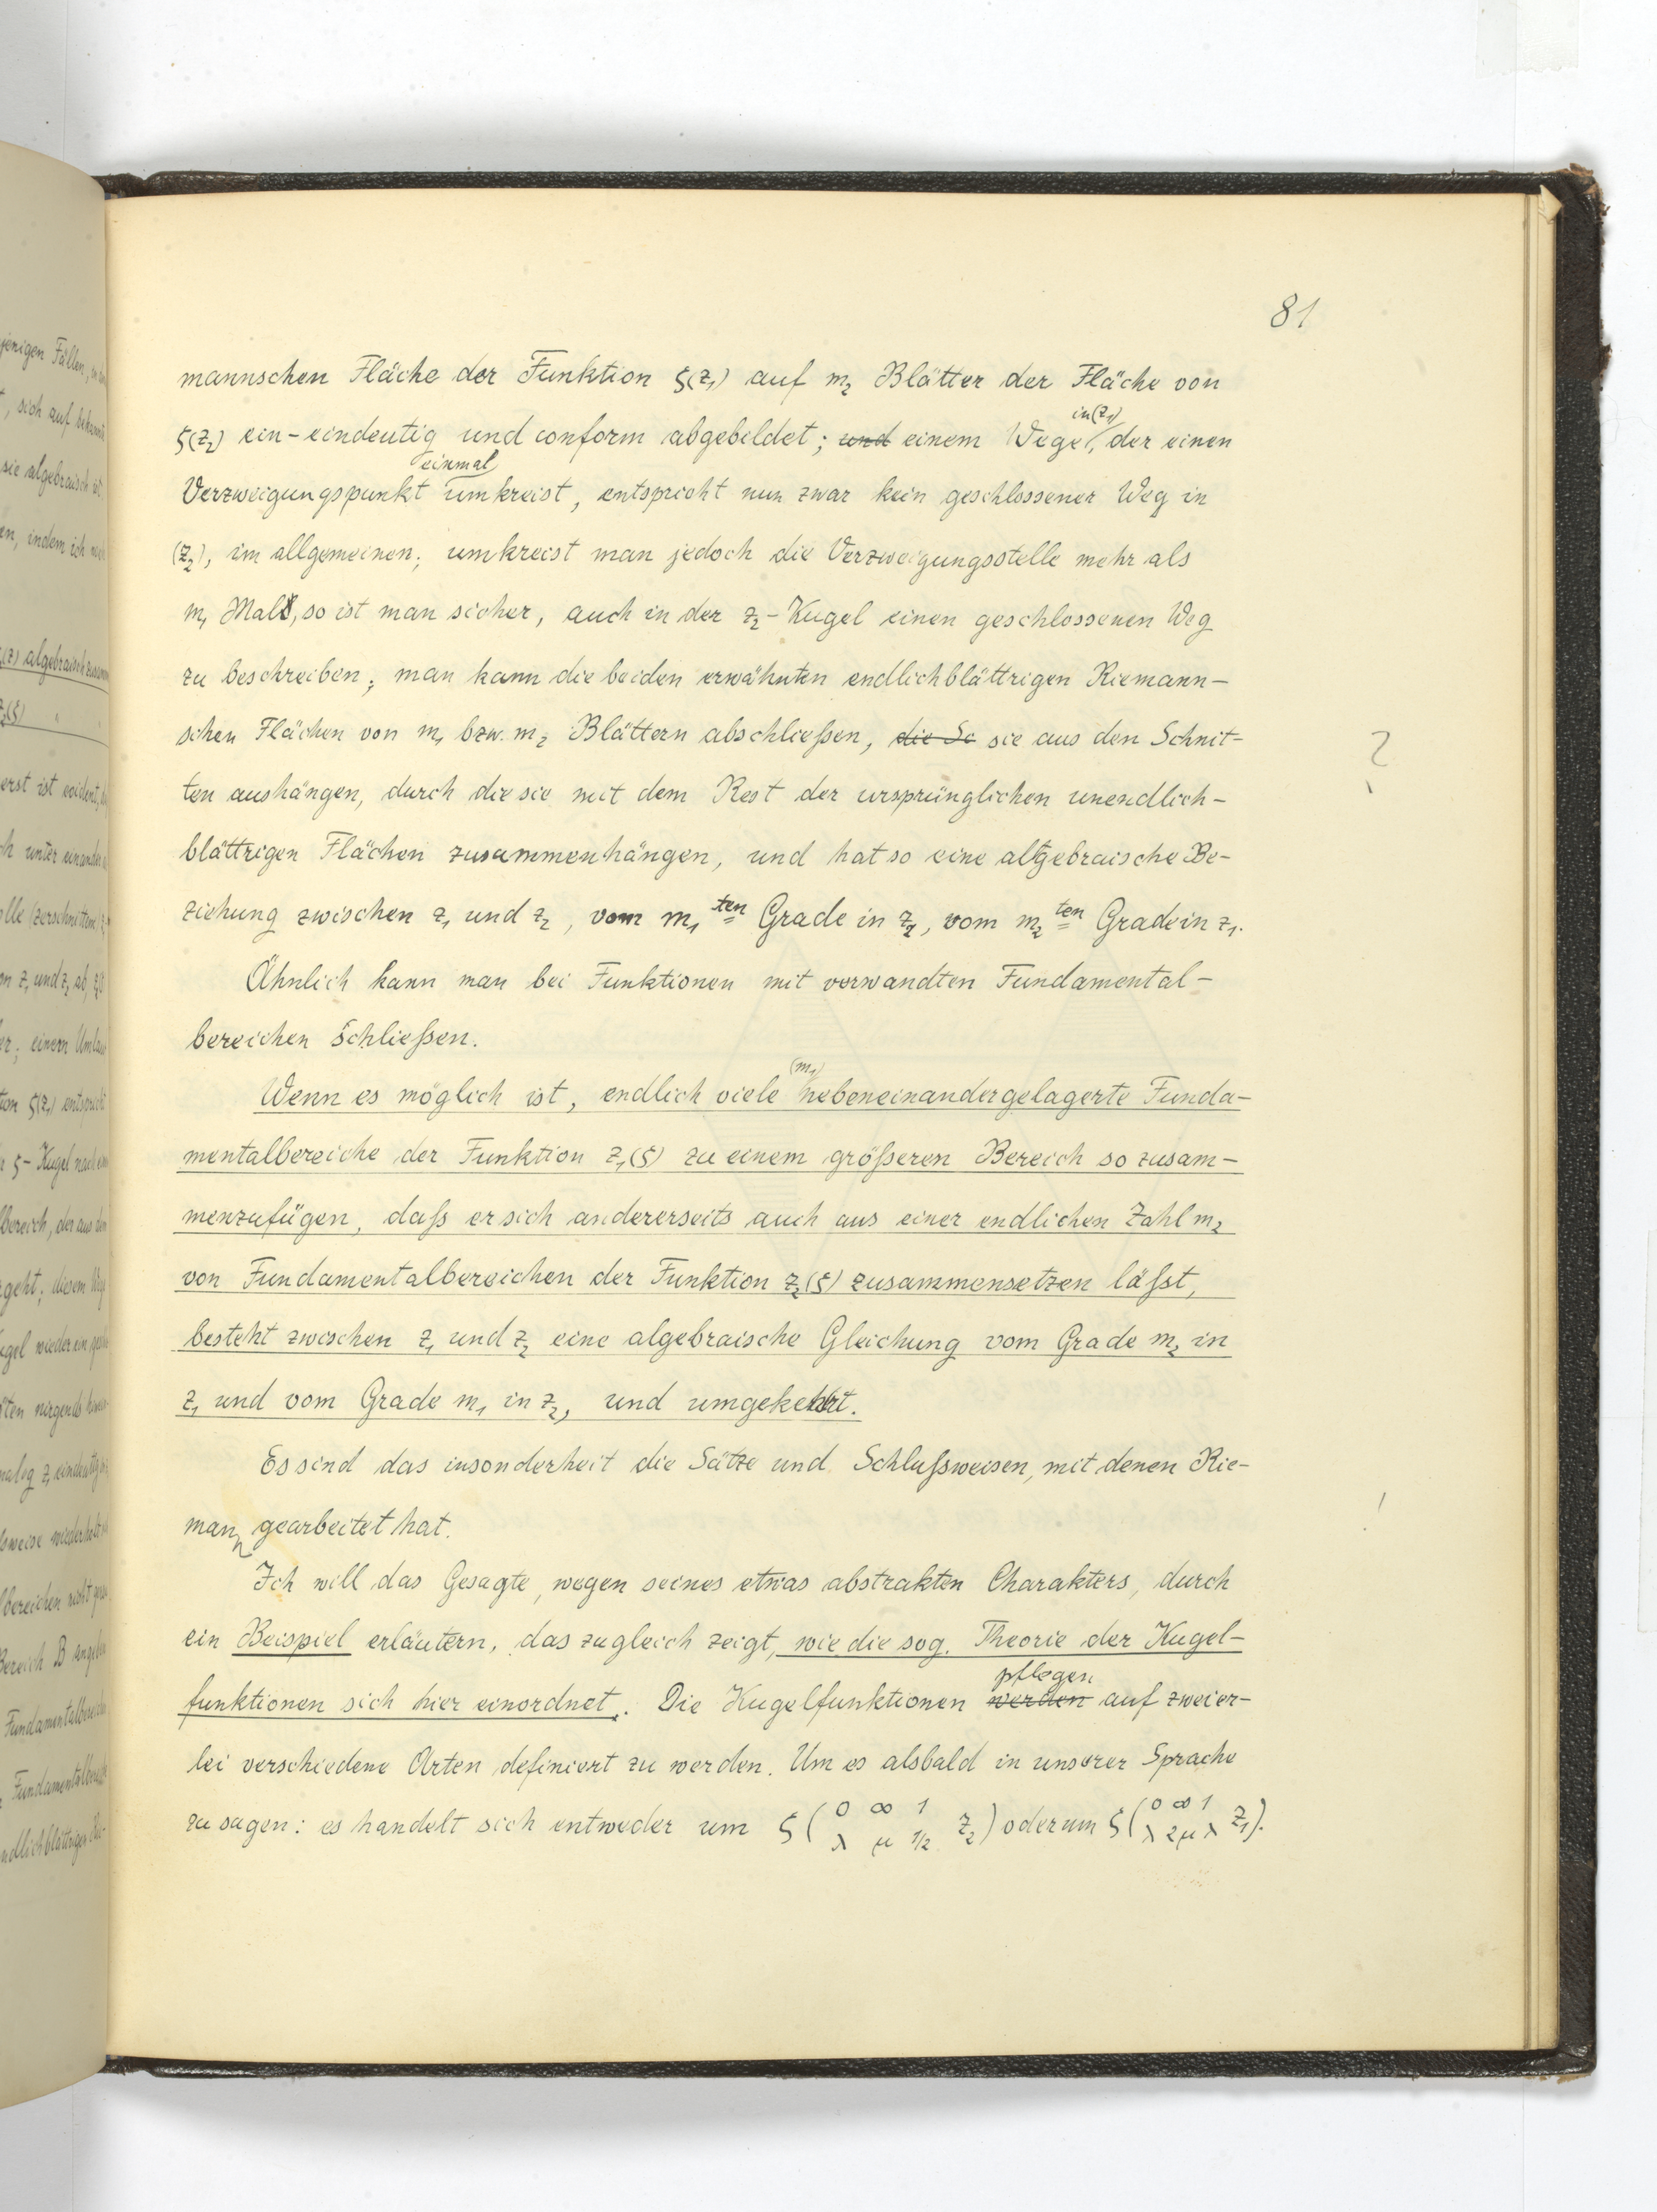 81
mannschen Fläche der Funktion ζ(z₁) auf m₂ Blätter der Fläche von
in (z₁)
ζ(z₂) ein-eindeutig und conform abgebildet; und einem Wege, der einen
einmal
Verzweigungspunkt umkreist, entspricht nun zwar kein geschlossener Weg in
(z₂), im allgemeinen; umkreist man jedoch die Verzweigungsstelle mehr als
m₁ Mal, so ist man sicher, auch in der z₂-Kugel einen geschlossenen Weg
zu beschreiben; man kann die beiden erwähnten endlichblättrigen Riemann-
schen Flächen von m₁ bzw. m₂ Blättern abschließen, die Sc sie aus den Schnit-
?
ten aushängen, durch die sie mit dem Rest der ursprünglichen unendlich-
blättrigen Flächen zusammenhängen, und hat so eine algebraische Be-
ziehung zwischen z₁ und z₂, vom m₁ten Grade in z₂, vom m₂ten Grade in z₁.
Ähnlich kann man bei Funktionen mit verwandten Fundamental-
bereichen schließen.
(m₁)
Wenn es möglich ist, endlich viele nebeneinandergelagerte Funda-
mentalbereiche der Funktion z₁(ζ) zu einem größeren Bereich so zusam-
menzufügen, daß er sich andererseits auch aus einer endlichen Zahl m₂
von Fundamentalbereichen der Funktion z₂(ζ) zusammensetzen läßt,
besteht zwischen z₁ und z₂ eine algebraische Gleichung vom Grade m₂ in
z₁ und vom Grade m₁ in z₂, und umgekehrt.
Es sind das insonderheit die Sätze und Schlußweisen, mit denen Rie-
!
mann gearbeitet hat.
Ich will das Gesagte, wegen seines etwas abstrakten Charakters, durch
ein Beispiel erläutern, das zugleich zeigt, wie die sog. Theorie der Kugel-
pflegen
funktionen sich hier einordnet. Die Kugelfunktionen werden auf zweier-
lei verschiedene Arten definiert zu werden. Um es alsbald in unserer Sprache
zu sagen: es handelt sich entweder um ζ(0 ∞ 1 λ μ 1/2 z₂) oder um ζ(0 ∞ 1 λ 2μ λ z₁).